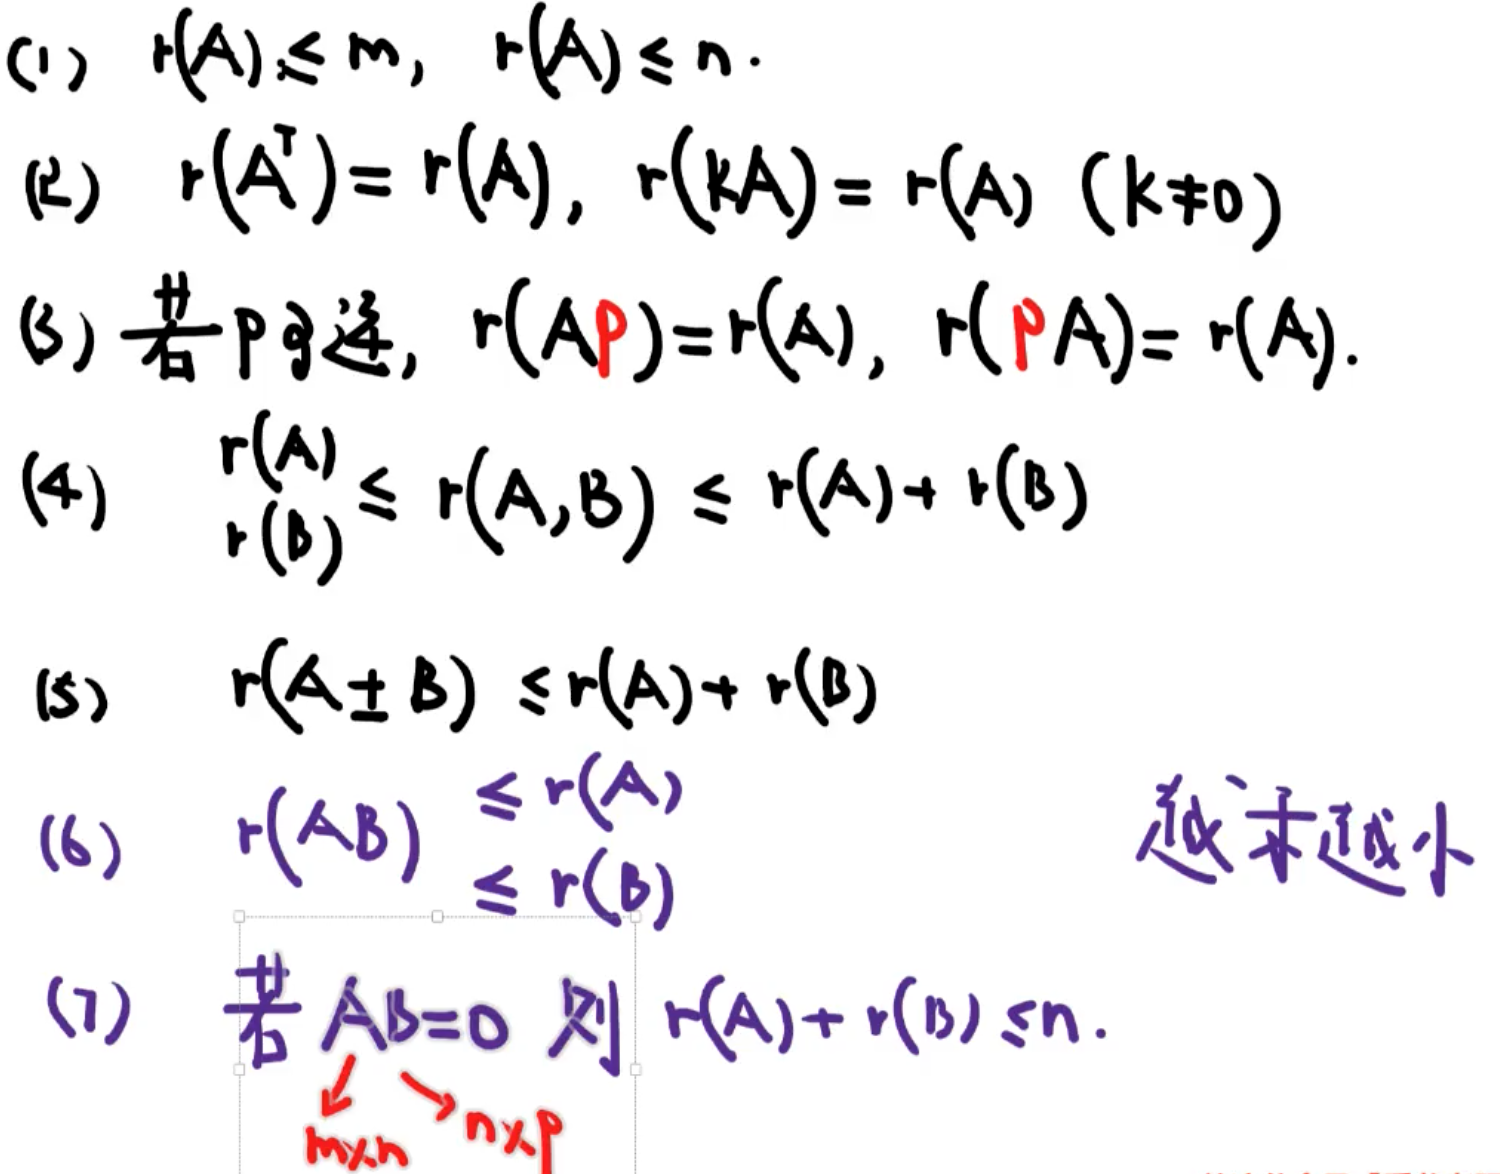 (1) r(A) ≤ m, r(A) ≤ n.
(2) r(Aᵀ) = r(A), r(kA) = r(A) (k≠0)
(3) 若P可逆, r(AP)=r(A), r(PA)=r(A).
(4) r(A) r(B) ≤ r(A,B) ≤ r(A)+r(B)
(5) r(A±B) ≤ r(A)+r(B)
(6) r(AB) ≤ r(A) ≤ r(B)
越乘越小
(7) 若 AB=0 则 r(A)+r(B) ≤ n.
m×n n×p